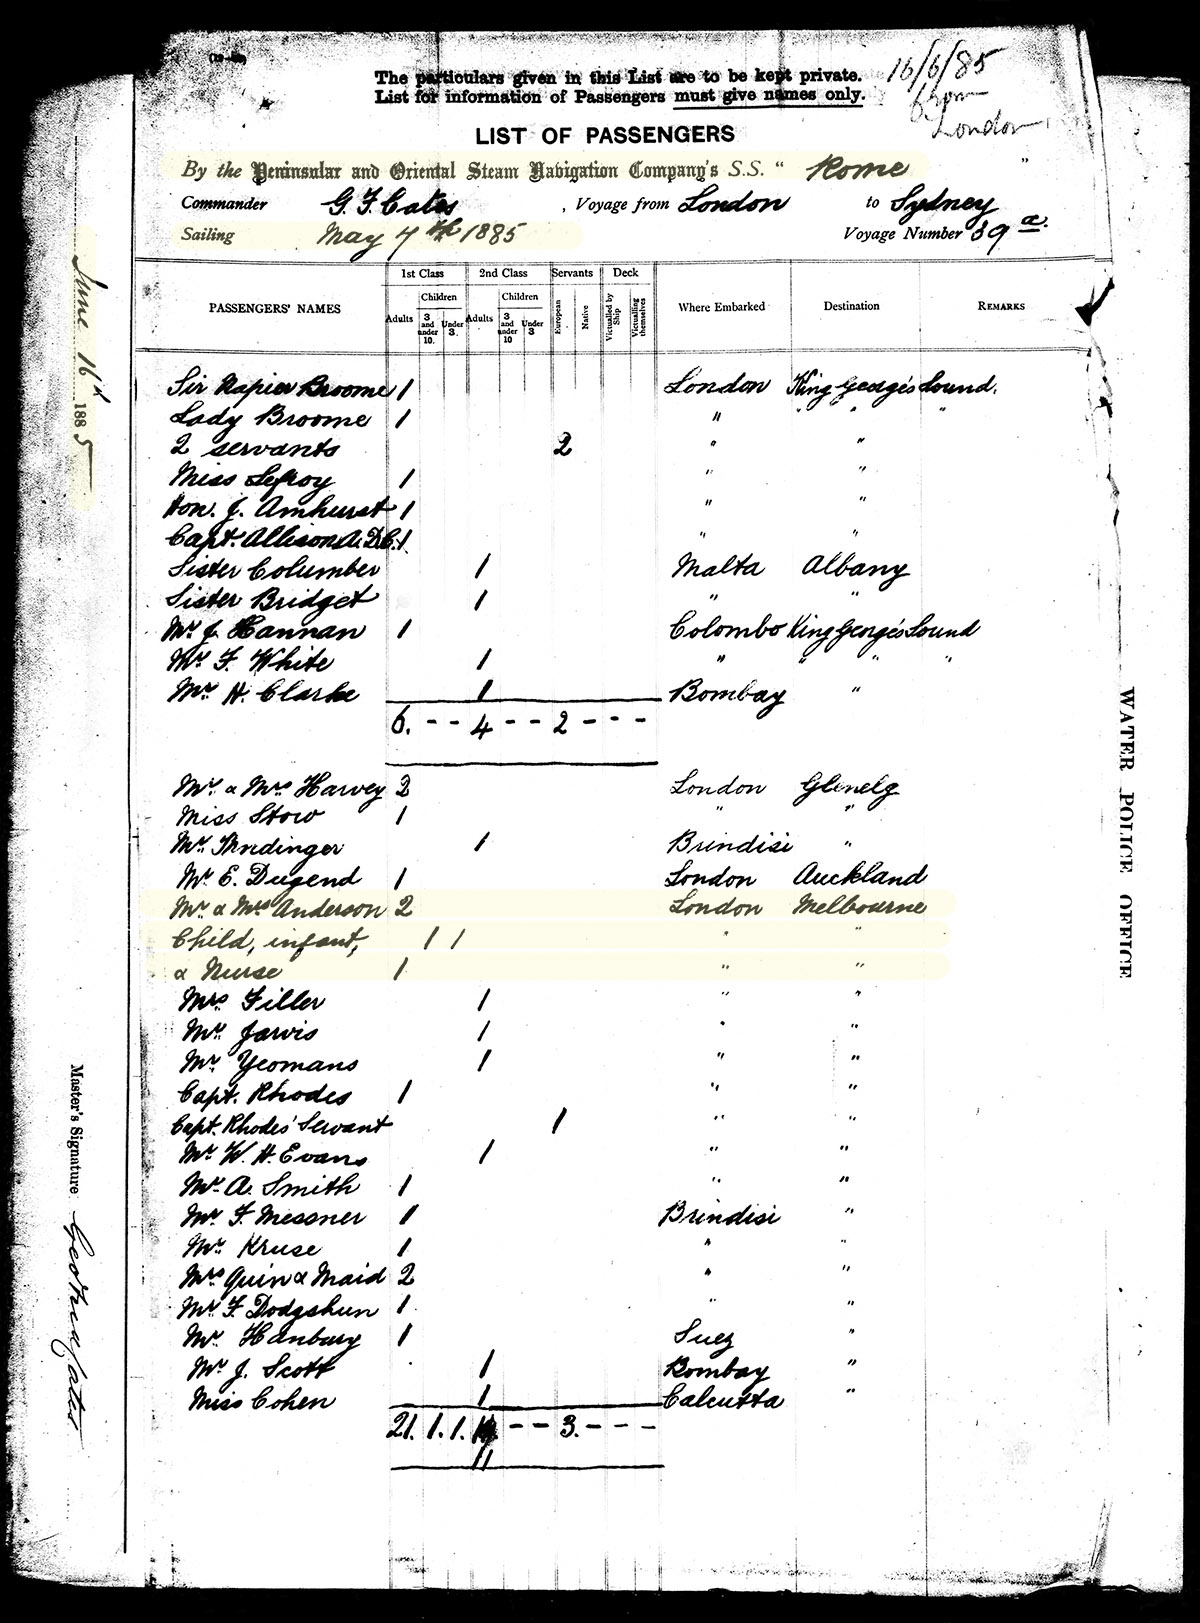 The particulars given in this List are to be kept private.
List for information of Passengers must give names only.
16/6/85
London
LIST OF PASSENGERS
By the Peninsular and Oriental Steam Navigation Company's S.S. " Rome "
Commander G. F. Cates , Voyage from London to Sydney
Sailing May 7th 1885 Voyage Number 39 a.
PASSENGERS' NAMES 1st Class 2nd Class Servants Deck Where Embarked Destination REMARKS
Adults Children 3 and under 10. Under 3. Adults Children 3 and under 10 Under 3 European Native Victualled by Ship Victualling themselves
Sir Napier Broome 1 London King George's Sound.
Lady Broome 1 " " " "
2 servants 2 " "
Miss Lefroy 1 " "
Hon. J. Amhurst 1 " "
Capt. Allison A.D.C. 1 " "
Sister Columber 1 Malta Albany
Sister Bridget 1 " "
Mr. J. Hannan 1 Colombo King George's Sound
Mr. F. White 1 " " " "
Mr. H. Clarke 1 Bombay "
6. - - 4 - - 2 - - -
Mr. & Mrs Harvey 2 London Glenelg
Miss Stow 1 " "
Mr. 1 Brindisi "
Mr. E. Dugend 1 London Auckland
Mr. & Mrs Anderson 2 London Melbourne
Child, infant, 1 1 " "
& Nurse 1 " "
Mrs Filler 1 " "
Mr. Jarvis 1 " "
Mr. Yeomans 1 " "
Capt. Rhodes 1 " "
Capt. Rhodes' Servant 1 " "
Mr. W. H. Evans 1 " "
Mr. A. Smith 1 " "
Mr. F. Messner 1 Brindisi "
Mr. Kruse 1 " "
Mrs Quin & Maid 2 " "
Mr. F. Dodgshun 1 " "
Mr. Hanbury 1 Suez "
Mr. J. Scott 1 Bombay "
Miss Cohen 1 Calcutta "
21. 1. 1. - - 3. - - -
11
June 16th 1885
Master's Signature
WATER POLICE OFFICE